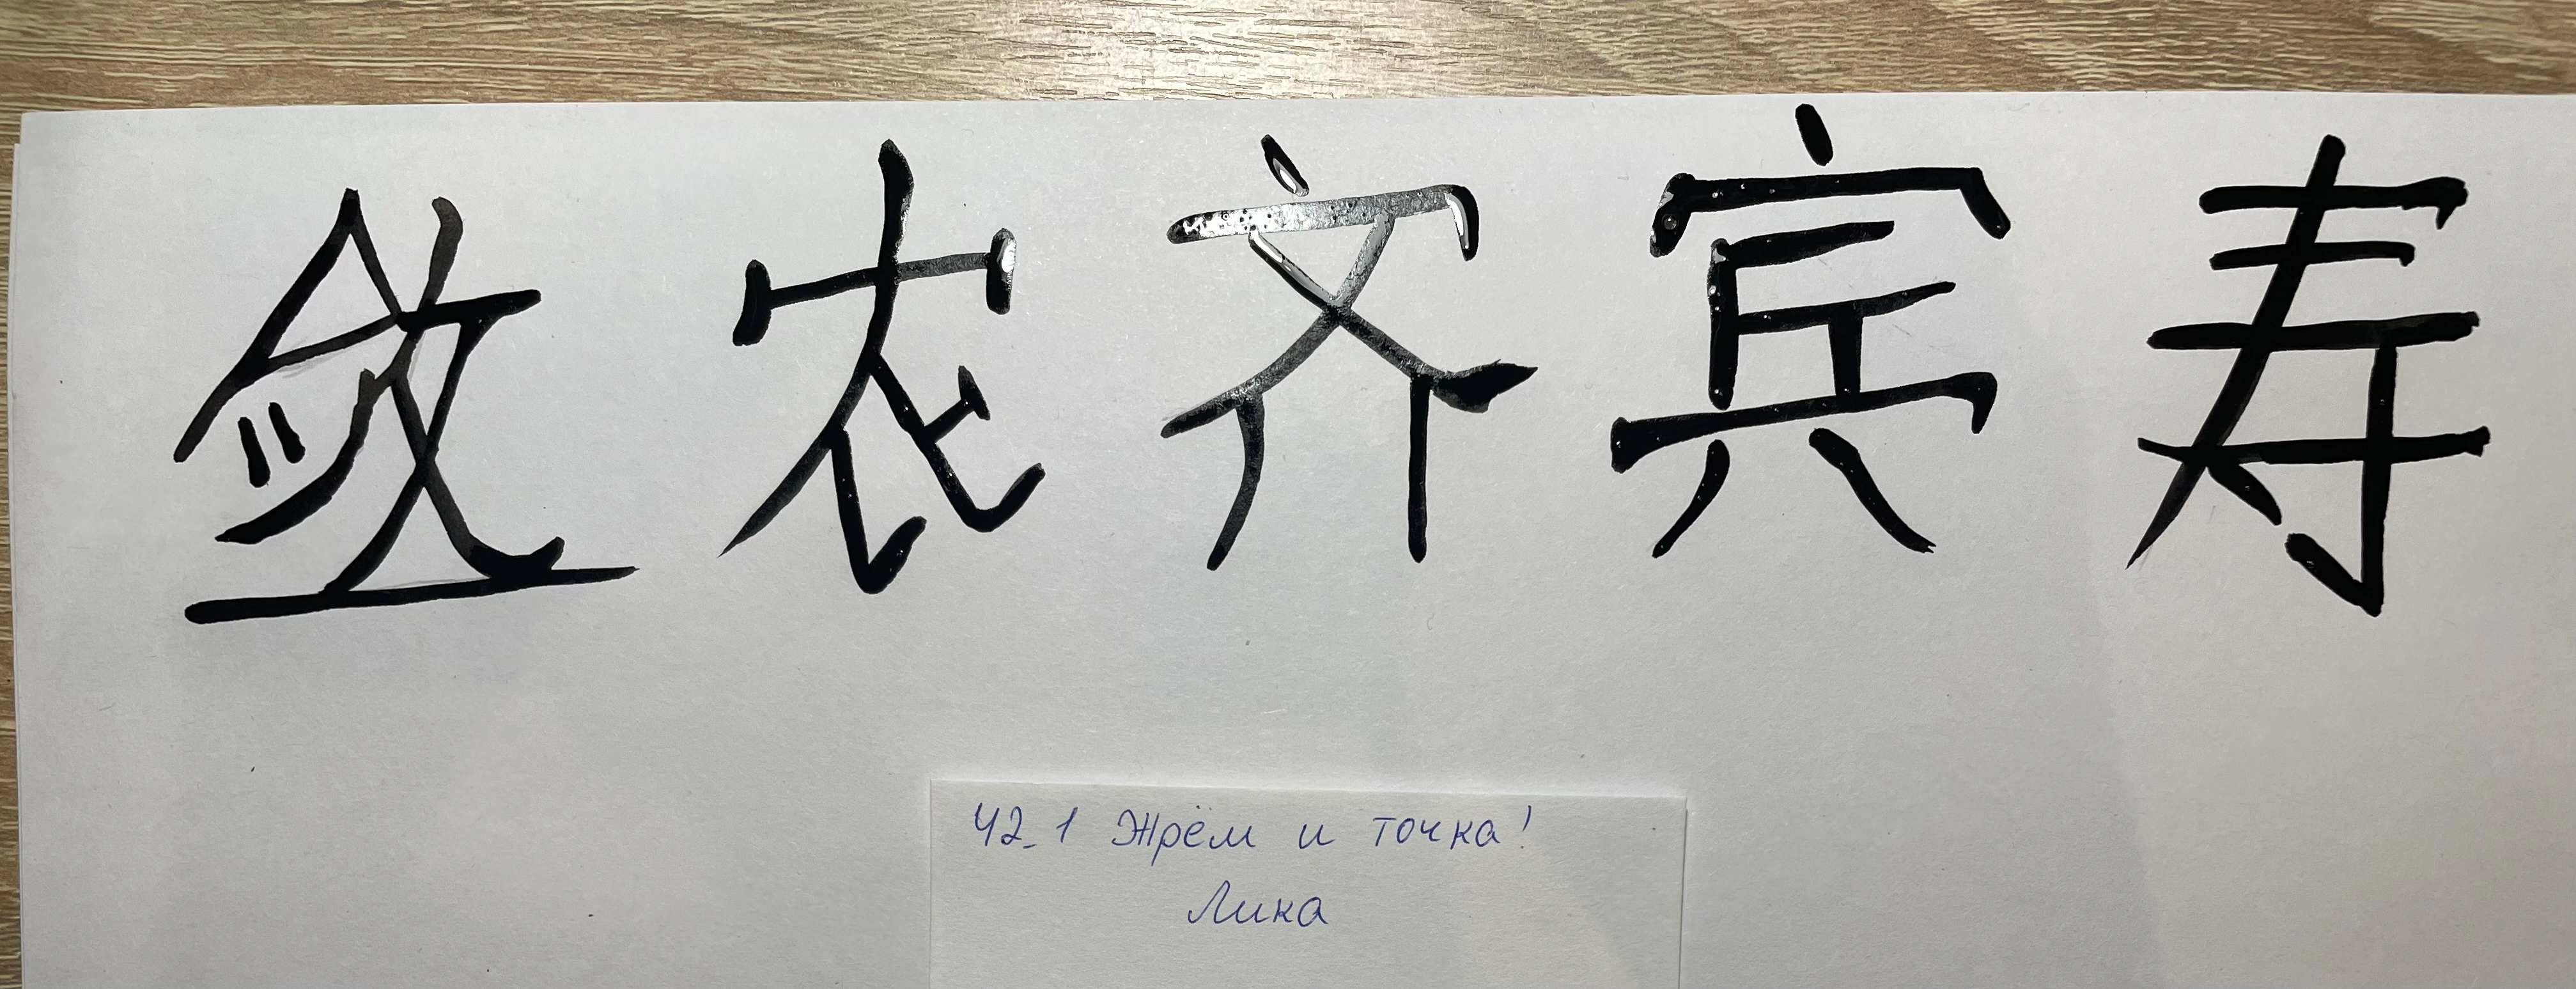 敛农齐宾寿
42_1 Жрём и точка!
Лика